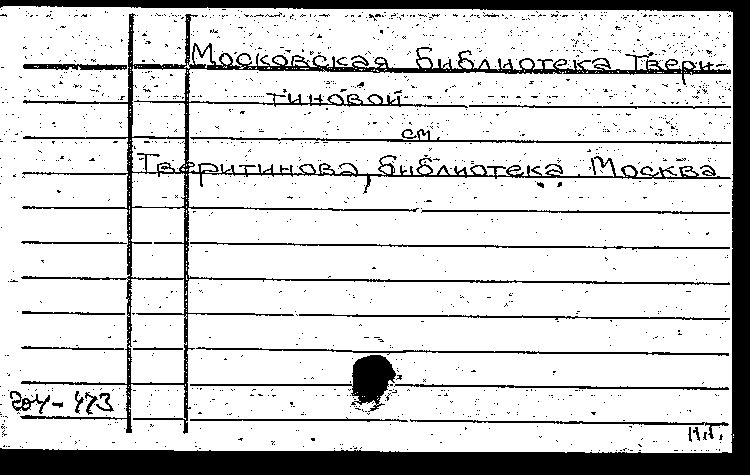 Московская библиотека Твери-
тиновой
см.
Тверитинова, библиотека. Москва
473